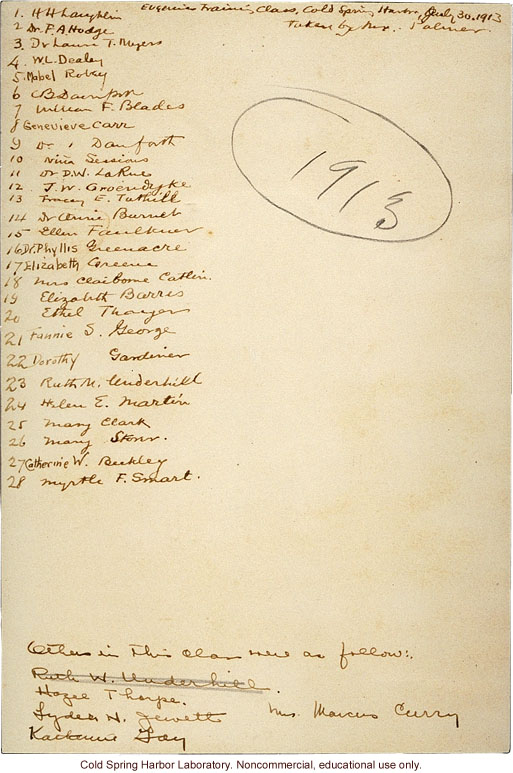 Eugenics Training Class, Cold Spring Harbor, July 30, 1913
Taken by Palmer
1. H H Laughlin
2 Dr. F. A Hodge
3. Dr Laura T. Myers
4. W. L. Dealey
5. Mabel Robey
6 C B Davenport
7 William F. Blades
8 Genevieve Carr
9 Danforth
10 Nina Sessions
11 Dr D. W. LaRue
12 J. W. Groendyke
13 Tracy E. Tuthill
14 Dr Annie Burnet
15 Ellen Faulkner
16 Dr. Phyllis Greenacre
17 Elizabeth Greene
18 Mrs Claiborne Catlin.
19 Elizabeth Barris
20 Ethel Thayer
21 Fannie S. George
22 Dorothy Gardiner
23 Ruth M. Underhill
24 Helen E. Martin
25 Mary Clark
26 Mary Storer.
27 Catherine W. Buckley
28 Myrtle F. Smart.
1913
Others in this class were as follow:.
Ruth W. Underhill.
Hazel Thorpe.
Lydia H. Jewett Mrs. Marcus Curry
Katharine Gay
Cold Spring Harbor Laboratory. Noncommercial, educational use only.